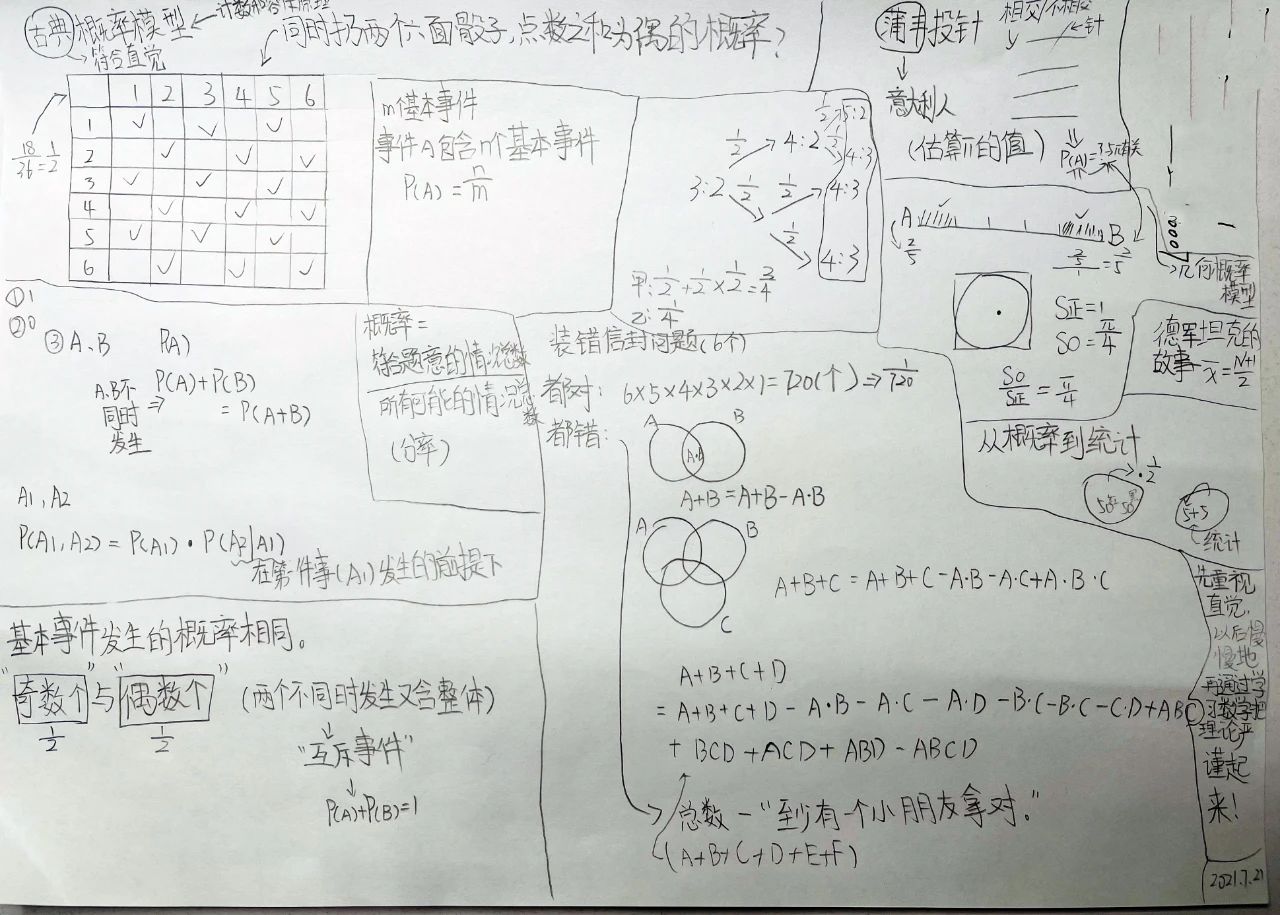 古典概率模型
符合直觉
同时扔两个六面骰子,点数之和为偶的概率?
1 2 3 4 5 6
1
2
3
4
5
6
18/36=1/2
m个基本事件
事件A包含n个基本事件
P(A)=n/m
3:2
1/2
4:2
1/2
5:2
1/2
4:3
1/2
1/2
4:3
1/2
4:3
甲:1/2+1/2×1/2=3/4
乙:1/4
蒲丰投针
相交/不相交
针
意大利人
(估算π的值)
A
B
2/5
2/5/1=2/5
S正=1
S○=π/4
S○/S正=π/4
几何概率
模型
德军坦克的
故事
x̄=N+1/2
①1
②0
③A、B P(A)
A、B不
同时
发生
⇒P(A)+P(B)
=P(A+B)
A1,A2
P(A1,A2)=P(A1)·P(A2|A1)
在第一件事(A1)发生的前提下
概率=
符合题意的情况总数
所有可能的情况总数
(分率)
装错信封问题(6个)
都对: 6×5×4×3×2×1=720(个)⇒1/720
都错:
A
B
A·B
A+B=A+B-A·B
A
B
C
A+B+C=A+B+C-A·B-A·C+A·B·C
A+B+C+D
=A+B+C+D-A·B-A·C-A·D-B·C-B·C-C·D+ABC
+BCD+ACD+ABD-ABCD
总数-“至少有一个小朋友拿对。”
(A+B+C+D+E+F)
从概率到统计
1/2
5+5
统计
先重视
直觉,
以后慢
慢地
再通过学
习数学把
理论严
谨起
来!
基本事件发生的概率相同。
“奇数个”与“偶数个” (两个不同时发生又含整体)
1/2 1/2
“互斥事件”
P(A)+P(B)=1
2021.7.21